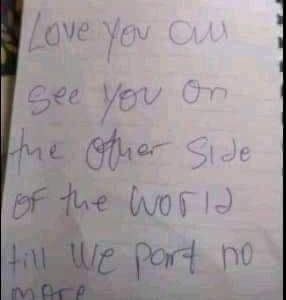 Love you all
see you on
the other side
of the world
till we part no
more